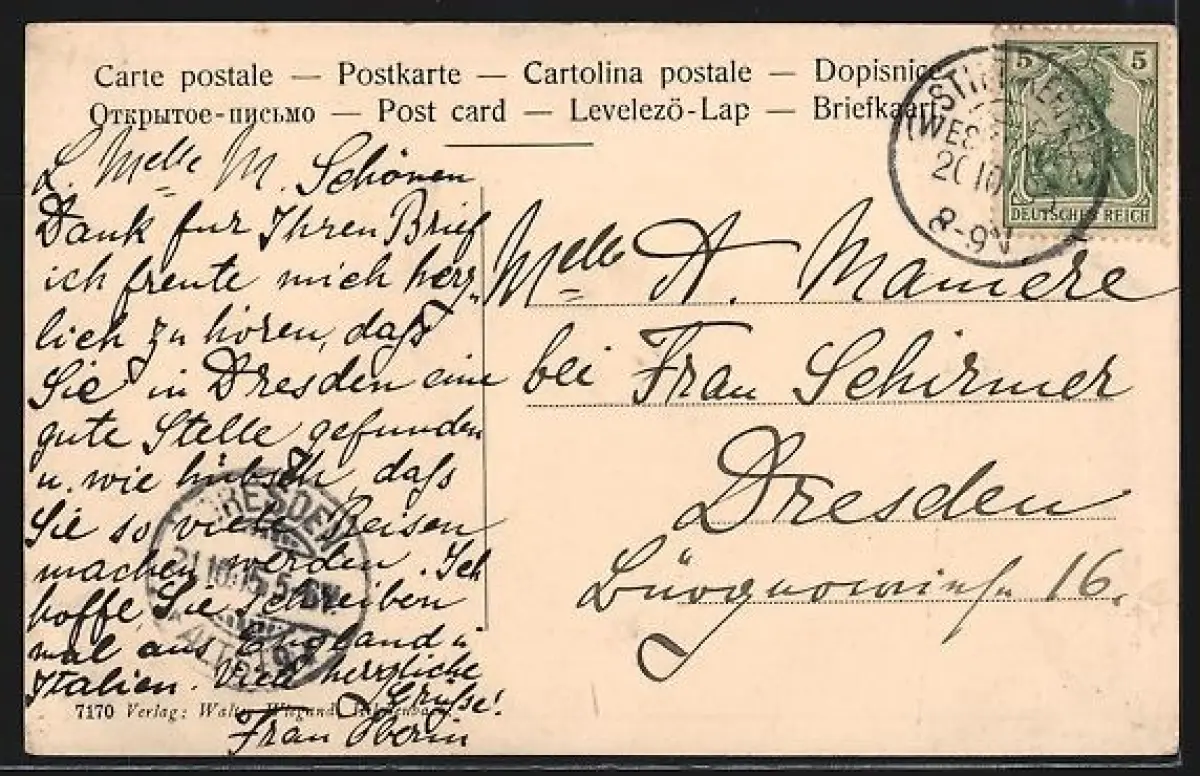 Carte postale — Postkarte — Cartolina postale — Dopisnice
Открытое-письмо — Post card — Levelező-Lap — Briefkaart
5 5
DEUTSCHES REICH
8-9V
L. Melle M. Schönen
Dank fur Ihren Brief
ich freute mich herz-
lich zu hören, daß
Sie in Dresden eine
gute Stelle gefunden
u. wie hübsch, daß
Sie so viele Reisen
machen werden. Ich
hoffe, Sie schreiben
mal aus England u
Italien. Viele herzliche
Grüße!
Frau Oberin
Melle A. Mamere
bei Frau Schirmer
Dresden
16.
DRESDEN
7170 Verlag: